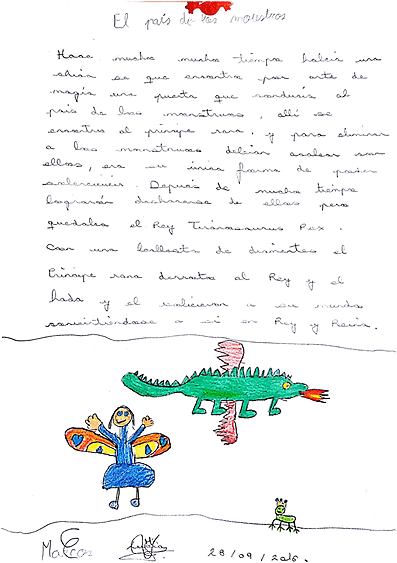 El país de los monstros
Hace mucho mucho tiempo había un
se que encontro por arte de
magia una puerta que conducía al
país de los monstruos, allí se
encontro al príncipe rana, y para eliminar
a los monstruos debían acabar con
ellos, era su única forma de poder
Después de mucho tiempo
lograron deshacerse de ellos pero
quedaba el Rey Tiranosaurus Rex.
Con una ballesta de diamantes el
Príncipe rana derroto al Rey y el
hada y el volvieron a su mundo
convirtiéndose a sí en Rey y Reina.
Marcos
28/09/2016.